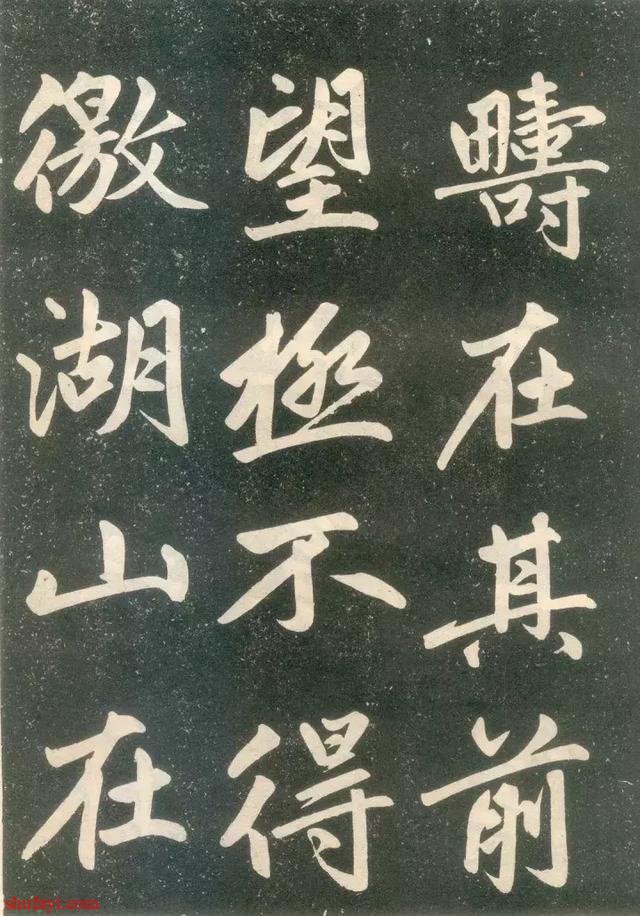 疇在其前
望極不得
徼湖山在
shufayi.com